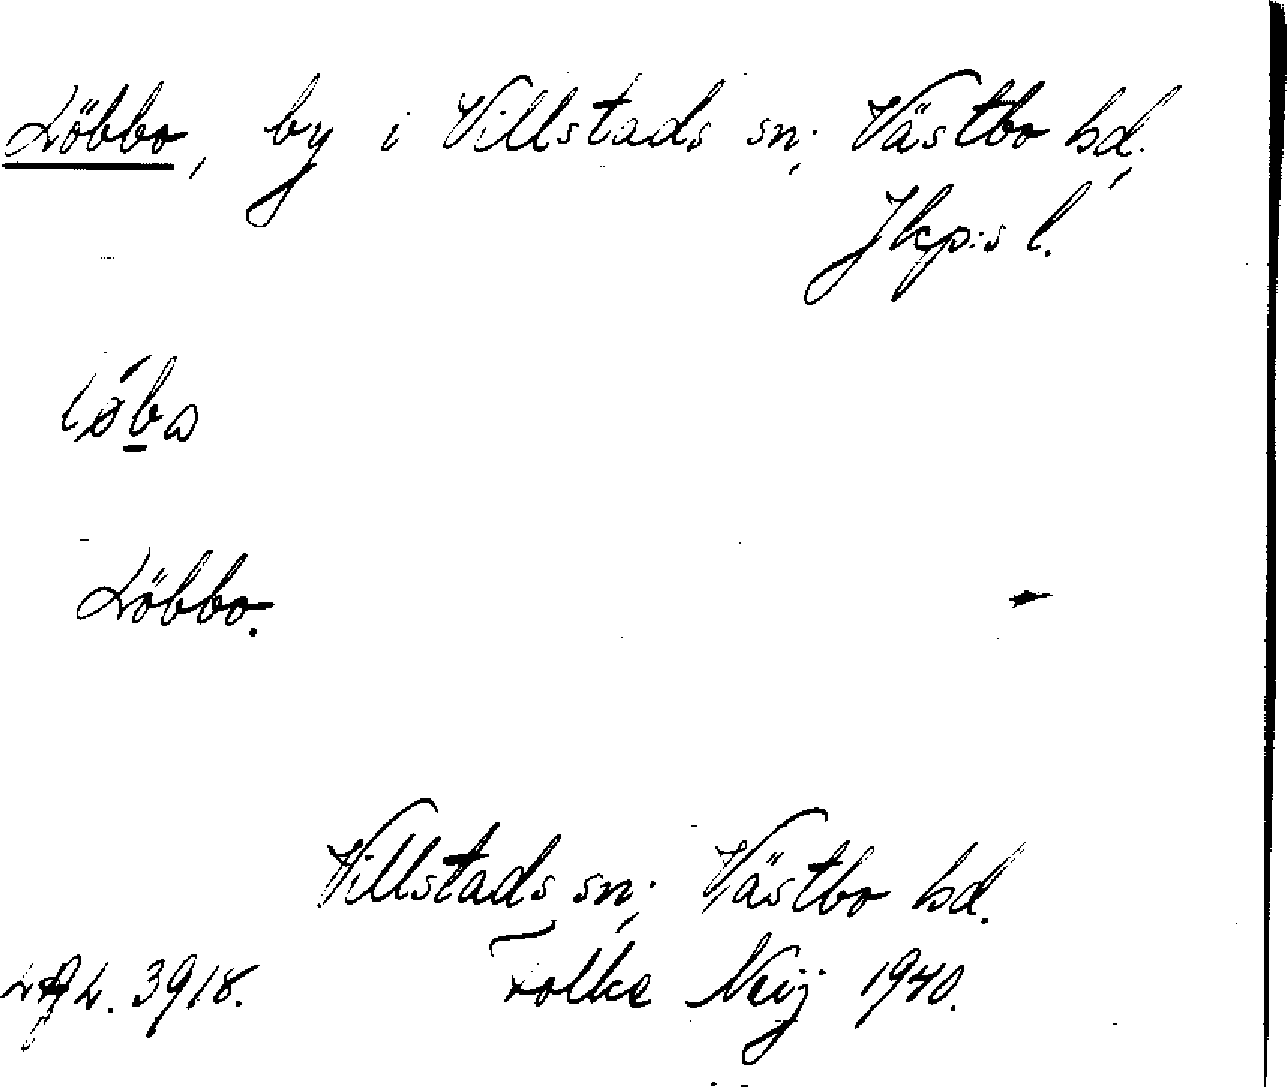 Löbbo, by i Villstads sn; Västbo hd.,
Jkp:s l.
Löbbo.
Villstads sn; Västbo hd.
3918. Folke Neij 1940.